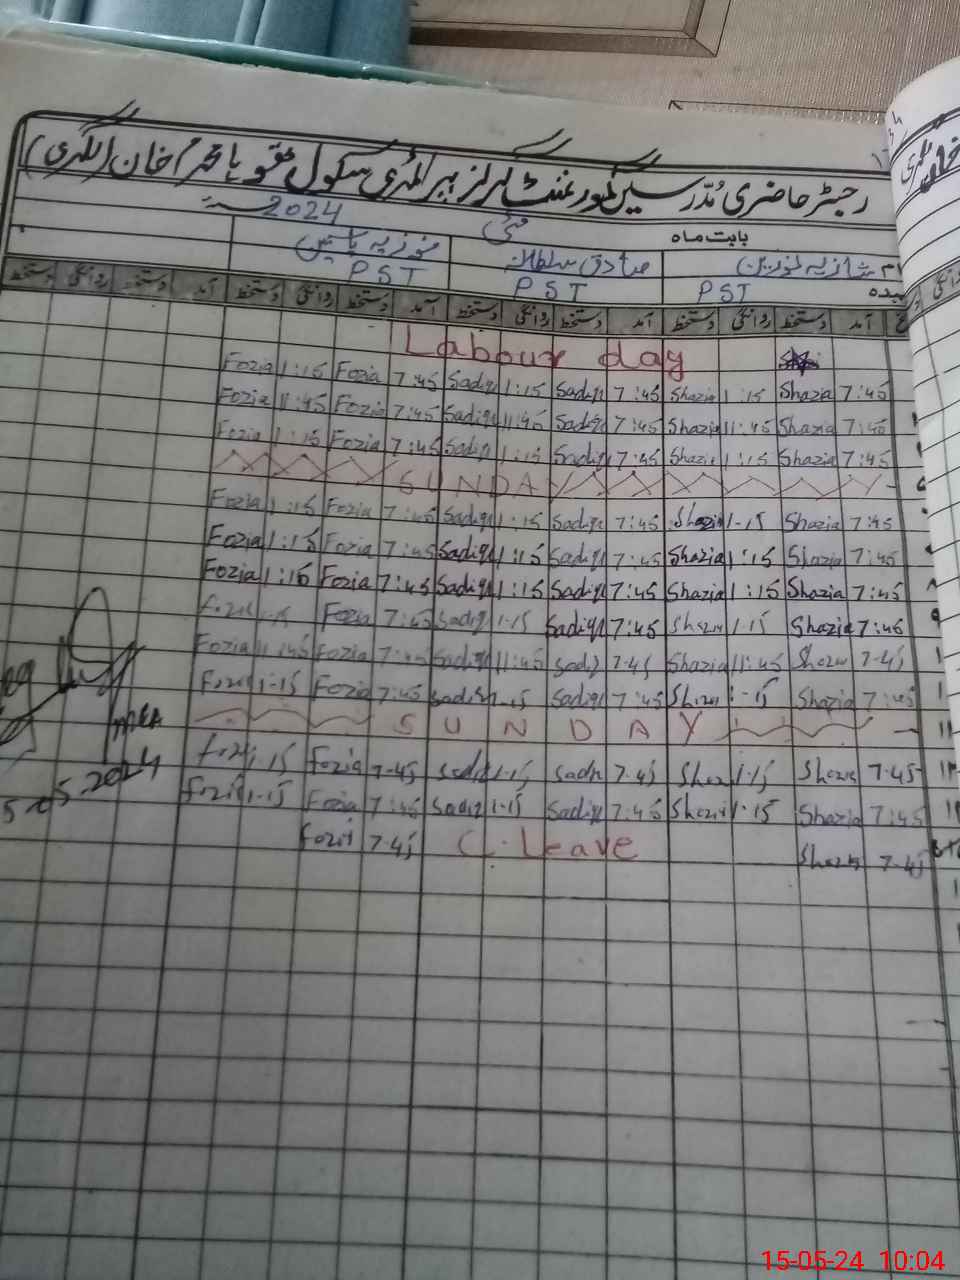 رجسٹر حاضری مدرسین گورنمنٹ گرلز پرائمری سکول خان
بابت ماہ مئی 2024
شازیہ نورین صادق سلطانہ فوزیہ یاسمین
PST PST PST
آمد دستخط روانگی دستخط آمد دستخط روانگی دستخط آمد دستخط روانگی دستخط آمد دستخط روانگی دستخط
Labour day
Fozia 1:15 Fozia 7:45 Sadiq 1:15 Sadiq 7:45 Shazia 1:15 Shazia 7:45
Fozia 11:45 Fozia 7:45 Sadiq 11:45 Sadiq 7:45 Shazia 11:45 Shazia 7:45
Fozia 1:15 Fozia 7:45 Sadiq 1:15 Sadiq 7:45 Shazia 1:15 Shazia 7:45
SUNDAY
Fozia 1:15 Fozia 7:45 Sadiq 1:15 Sadiq 7:45 Shazia 1-15 Shazia 7:45
Fozia 1:15 Fozia 7:45 Sadiq 1:15 Sadiq 7:45 Shazia 1:15 Shazia 7:45
Fozia 1:15 Fozia 7:45 Sadiq 1:15 Sadiq 7:45 Shazia 1:15 Shazia 7:45
Fozia 1-15 Fozia 7:45 Sadiq 1-15 Sadiq 7:45 Shazia 1-15 Shazia 7:45
Fozia 11:45 Fozia 7:45 Sadiq 11:45 Sadiq 7-45 Shazia 11:45 Shazia 7-45
Fozia 1-15 Fozia 7:45 Sadiq 1-15 Sadiq 7:45 Shazia 1-15 Shazia 7:45
SUNDAY
Fozia 1-15 Fozia 7-45 Sadiq 1-15 Sadiq 7-45 Shazia 1-15 Shazia 7-45
Fozia 1-15 Fozia 7:45 Sadiq 1-15 Sadiq 7:45 Shazia 1-15 Shazia 7:45
Fozia 7-45 C. Leave Shazia 7-45
MEA
5-2024
15-05-24 10:04